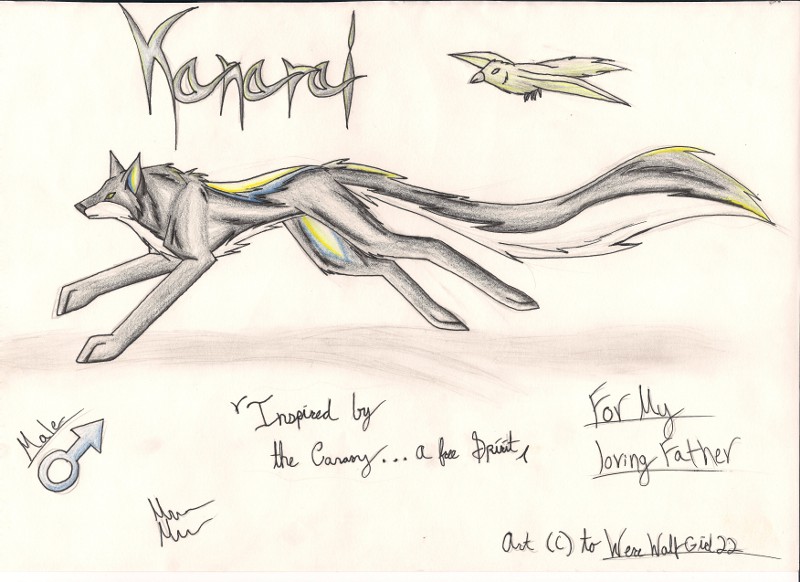 Kanarai
Male
Inspired by
the Canary... a free Spirit
For My
loving Father
Art (C) to WereWolfGirl22